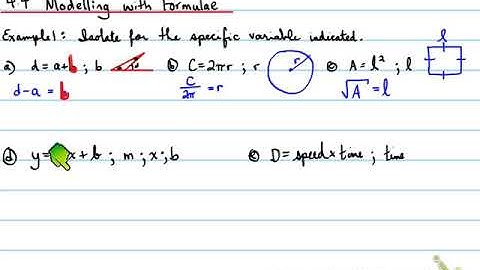 4.4 Modelling with Formulae
Example 1: Isolate for the specific variable indicated.
a) d = a + b ; b b) C = 2πr ; r r c) A = l² ; l l
d - a = b C/2π = r √A = l
d) y = x + b ; m ; x ; b e) D = speed × time ; time